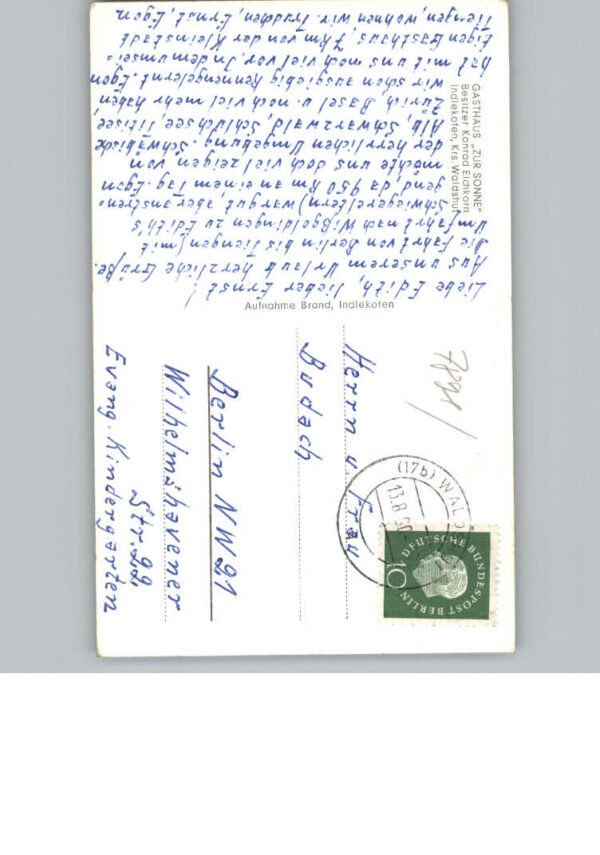 GASTHAUS „ZUR SONNE"
Besitzer Konrad Eichkorn
Indlekofen, Krs. Waldshut
Liebe Edith, lieber Ernst!
Aus unserem Urlaub herzliche Grüße.
Die Fahrt von Berlin bis Tiengen (mit
Umfahrt nach Wiggoldingen zu Edith's
Schwiegereltern) war gut aber anstren-
gend, da 950 km an einem Tag. Egon
möchte uns doch viel zeigen von
der herrlichen Umgebung. Schwäbische
Alb, Schwarzwald, Schluchsee, Titisee
Zürich Basel u. noch viel mehr haben
wir schon ausgiebig kennengelernt. Egon
hat mit uns noch viel vor. In dem
Eigen Gasthaus, 7 km von der Kleinstadt
Tiengen, wohnen wir. Trudchen, Ernst, Egon
Aufnahme Brand, Indlekofen
(17b) WALD
13.8.60
DEUTSCHE BUNDESPOST BERLIN
10
Herrn u. Frau
Budach
Berlin NW 21
Wilhelmshavener
Str. 99
Evang. Kindergarten